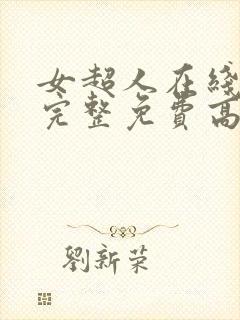 女超人在綫
完整免費高
劉新荣